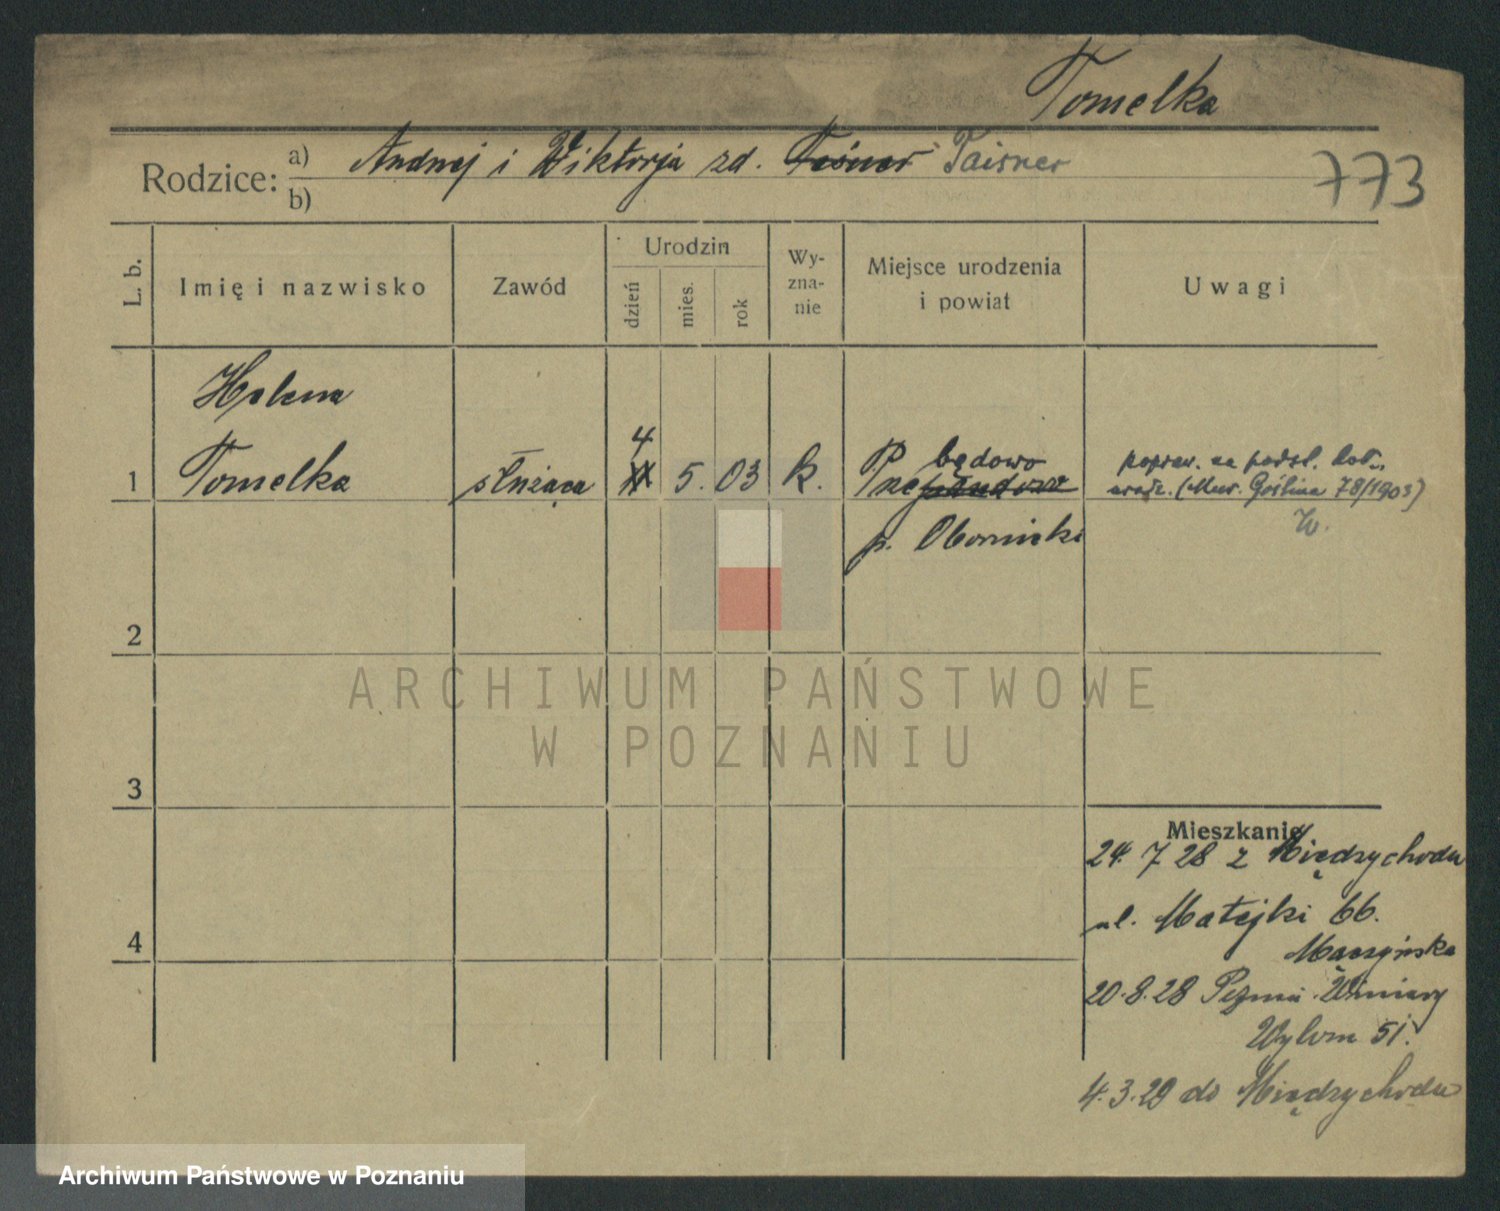 Tomelka
Rodzice: a) Andrzej i Wiktorja zd. Taisner
b)
773
L. b.
Imię i nazwisko
Zawód
Urodzin
dzień
mies.
rok
Wy-
zna-
nie
Miejsce urodzenia
i powiat
Uwagi
Helena
1 Tomelka służąca 4 5. 03 k. Przebędowo
p. Obornicki
popraw. na podst. dok.
urodz. (Mur. Goślina 78/1903)
W.
2
ARCHIWUM PAŃSTWOWE
W POZNANIU
3
Mieszkanie
24. 7 28 z Międzychodu
ul. Matejki 66.
4
20.8.28 Winiary
Wyłom 51.
4.3.29 do Międzychodu
Archiwum Państwowe w Poznaniu